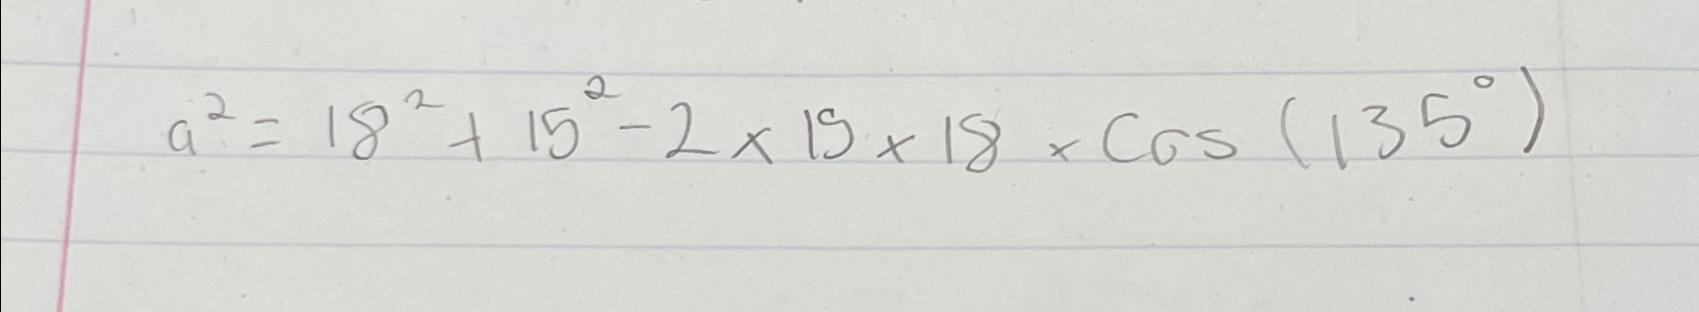 a² = 18² + 15² - 2 × 15 × 18 × Cos (135°)